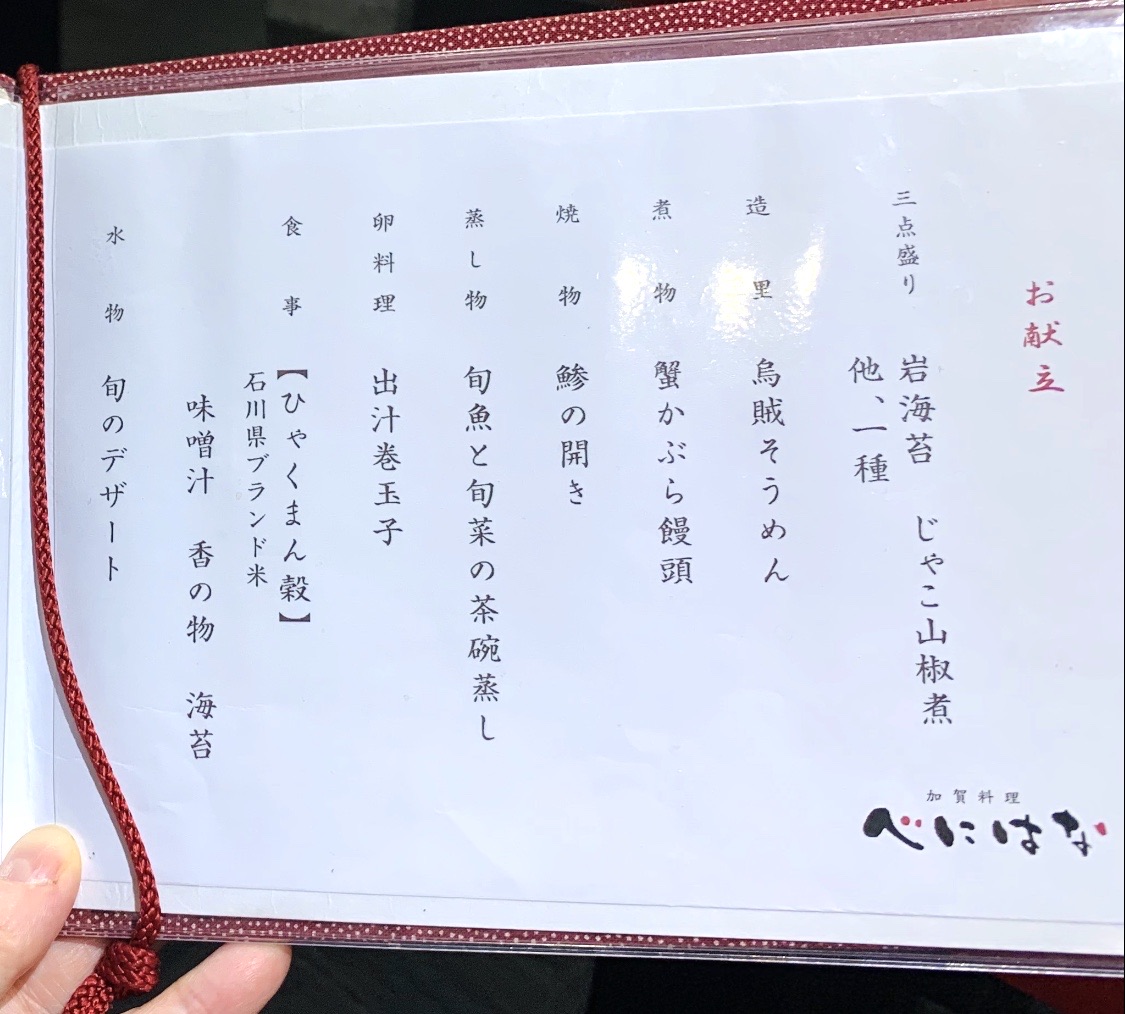 お献立
三点盛り 岩海苔 じゃこ山椒煮
他、一種
造里 烏賊そうめん
煮物 蟹かぶら饅頭
焼物 鯵の開き
蒸し物 旬魚と旬菜の茶碗蒸し
卵料理 出汁巻玉子
食事 【ひゃくまん穀】
石川県ブランド米
味噌汁 香の物 海苔
水物 旬のデザート
加賀料理
べにはな